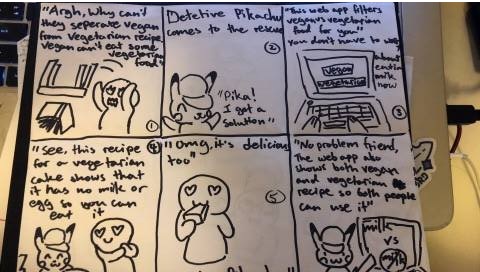 "Argh, Why can't
they seperate vegan
from vegetarian recipe
vegan can't eat some
vegetarian
food"
1
Detetive Pikachu
comes to the rescue
2
"Pika!
I got a
solution"
"This web app filters
vegan vs vegetarian
food for you"
You don't have to worry
about
milk
now
Vegan
vegetarian
3
"See, this recipe
for a vegetarian
cake shows that
it has no milk or
egg so you can
eat it
4
"Omg, it's delicious
too"
5
"No problem friend,
The web app also
shows both vegan
and vegetarian
recipe so both people
can use it"
milk
vs
milk